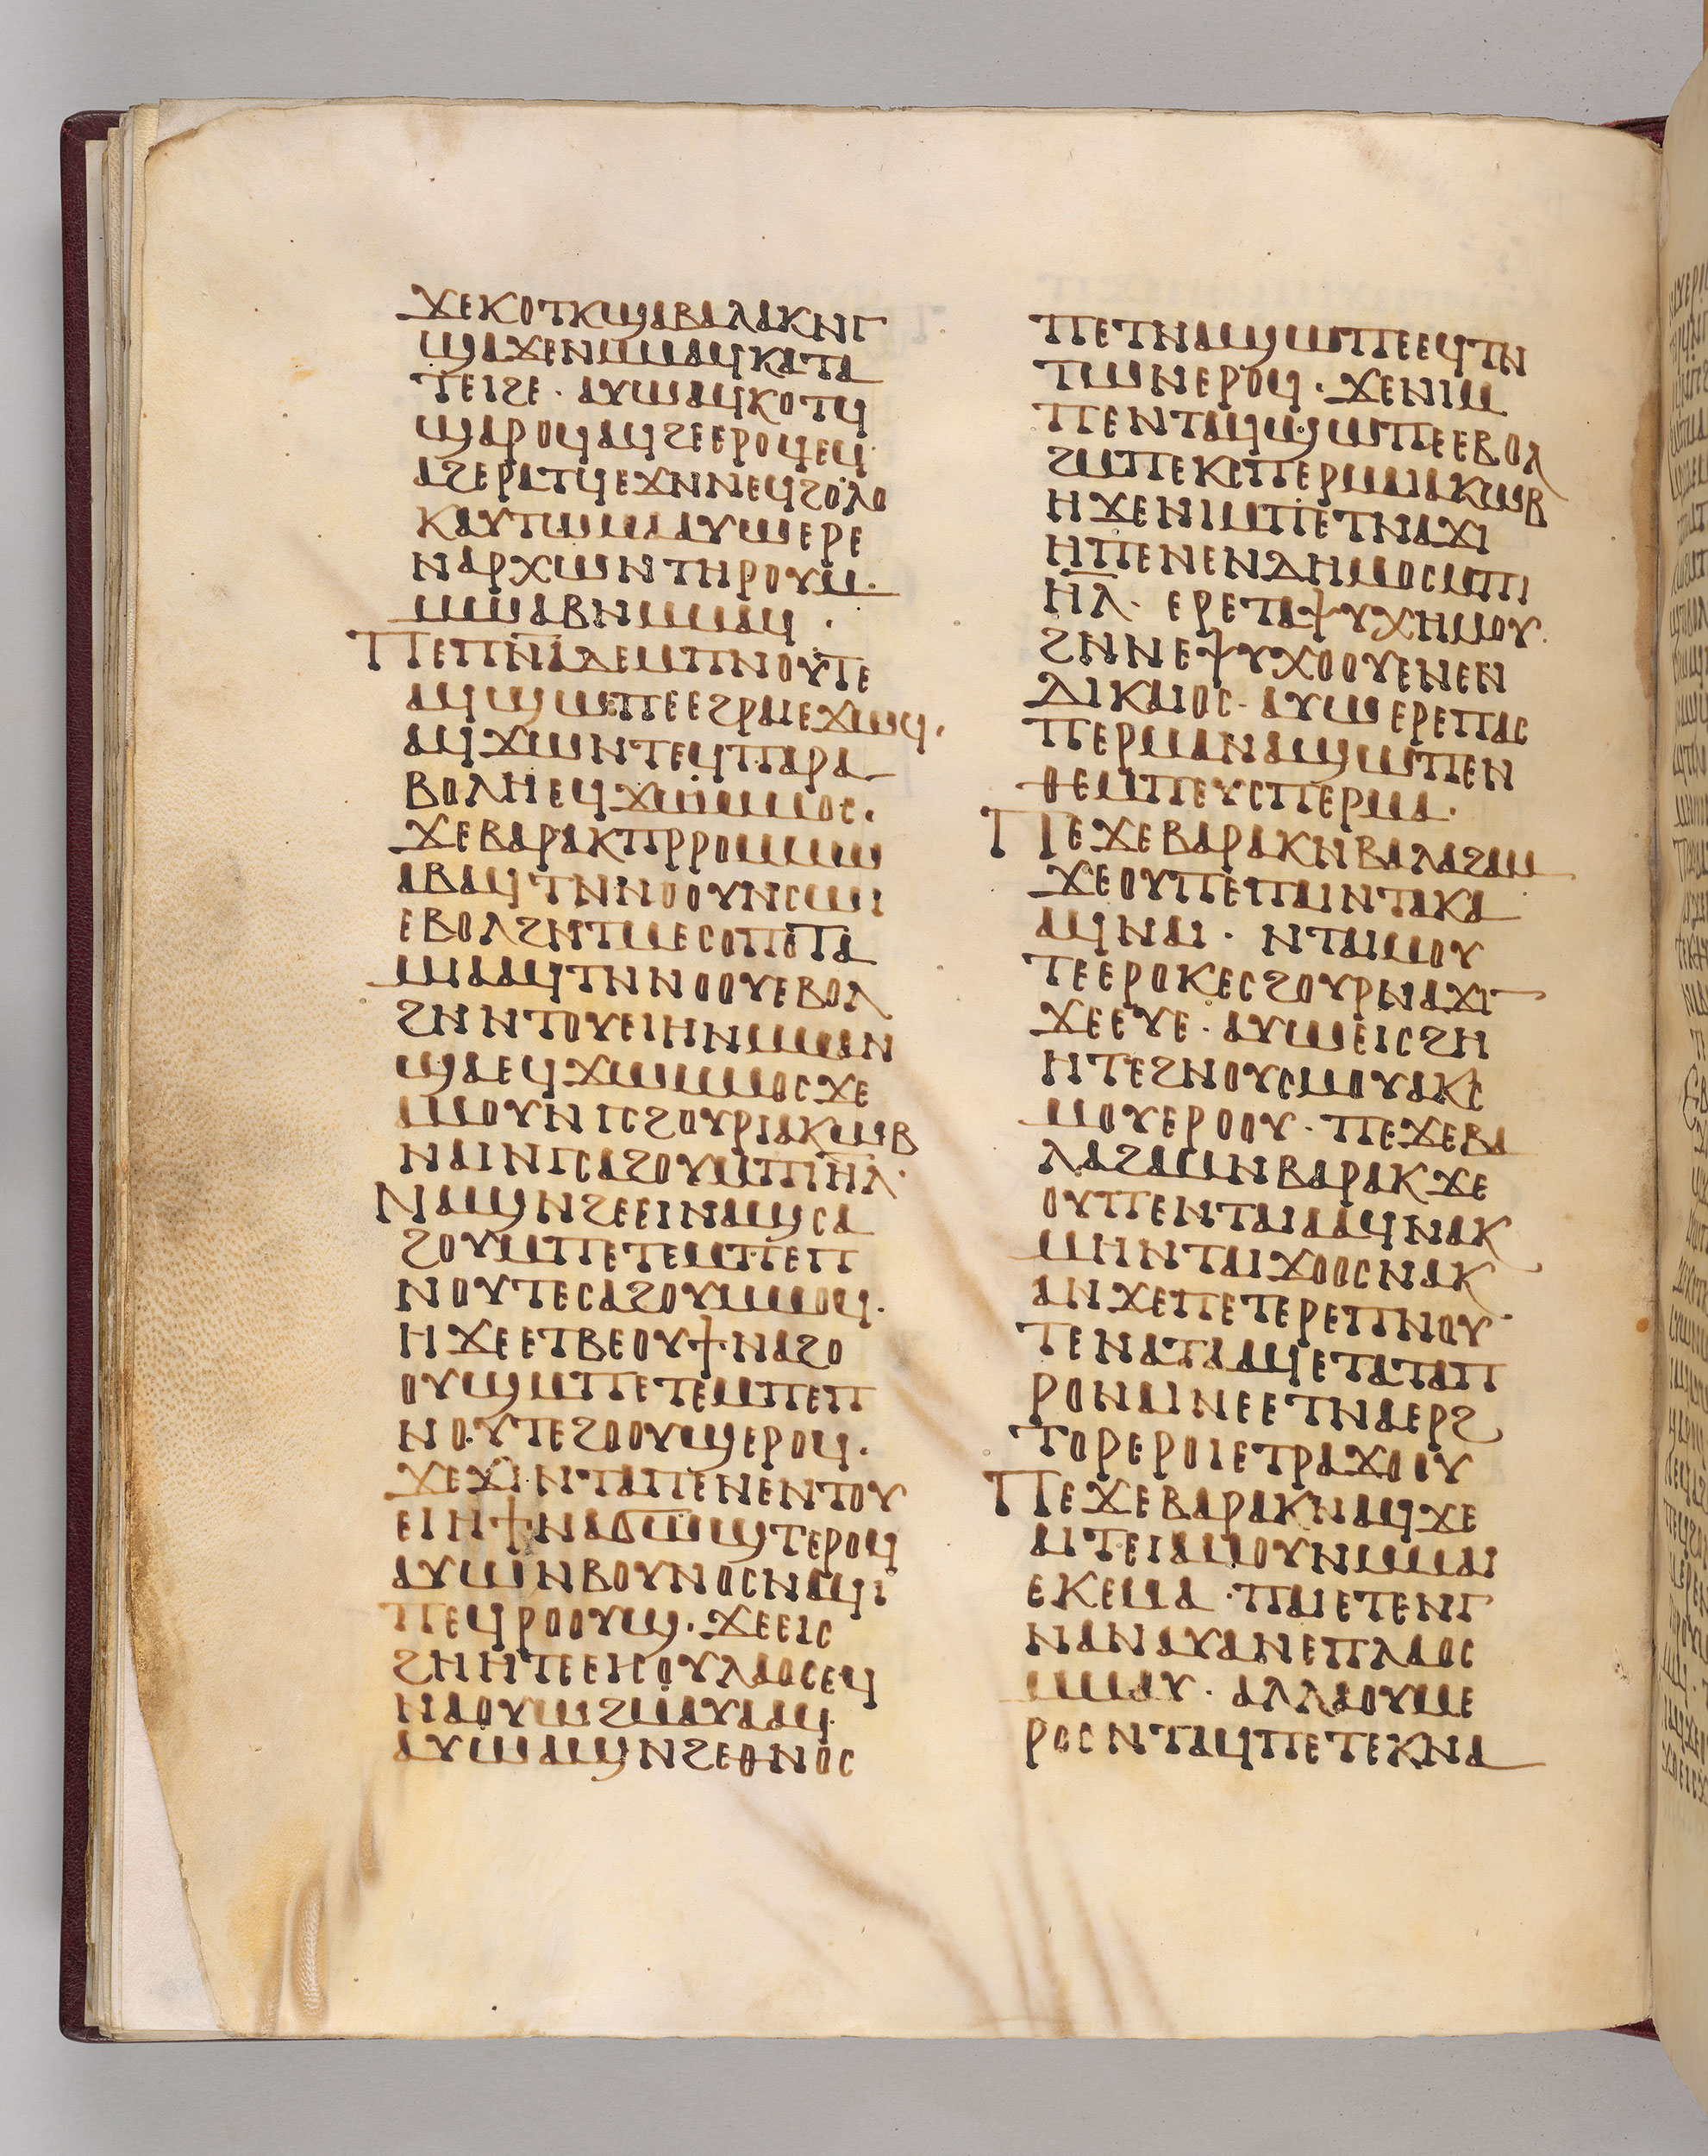 ϫⲉⲕⲟⲧⲕϣⲁⲃⲁⲗⲁⲕⲛⲅ
ϣⲁϫⲉⲛⲙⲙⲁϥⲕⲁⲧⲁ
ⲧⲉⲓϩⲉ · ⲁⲩⲱⲁϥⲕⲟⲧϥ
ϣⲁⲣⲟϥⲁϥϩⲉⲉⲣⲟϥⲉϥ
ⲁϩⲉⲣⲁⲧϥⲉϫⲛⲛⲉϥϩⲟⲗⲟ
ⲕⲁⲩⲧⲱⲙⲁⲁⲩⲱⲉⲣⲉ
ⲛⲁⲣⲭⲱⲛⲧⲏⲣⲟⲩⲙ
ⲙⲱⲁⲃⲛⲙⲙⲁϥ ·
ⲡⲉⲡⲛ̅ⲁ̅ⲇⲉⲙⲡⲛⲟⲩⲧⲉ
ⲁϥϣⲱⲡⲉⲉϩⲣⲁⲓⲉϫⲱϥ ·
ⲁϥϫⲱⲛⲧⲉϥⲡⲁⲣⲁ
ⲃⲟⲗⲏⲉϥϫⲱⲙⲙⲟⲥ ·
ϫⲉⲃⲁⲣⲁⲕⲡⲣⲣⲟⲙⲙⲱ
ⲁⲃⲁϥⲧⲛⲛⲟⲟⲩⲛⲥⲱⲓ
ⲉⲃⲟⲗϩⲛⲧⲙⲉⲥⲟⲡⲟⲧⲁ
ⲙⲓⲁⲁϥⲧⲛⲛⲟⲟⲩⲉⲃⲟⲗ
ϩⲛⲛⲧⲟⲩⲉⲓⲏⲛⲙⲙⲁⲛ
ϣⲁⲉϥϫⲱⲙⲙⲟⲥϫⲉ
ⲁⲙⲟⲩⲛⲅⲥϩⲟⲩⲣⲓⲁⲕⲱⲃ
ⲛⲁⲓⲛⲅⲥⲁϩⲟⲩⲙⲡⲓⲏ̅ⲗ̅ ·
ⲛⲁϣⲛϩⲉⲉⲓⲛⲁϣⲥⲁ
ϩⲟⲩⲙⲡⲉⲧⲉⲙⲡⲉⲡ
ⲛⲟⲩⲧⲉⲥⲁϩⲟⲩⲙⲙⲟϥ ·
ⲏϫⲉⲉⲧⲃⲉⲟⲩϯⲛⲁϩⲟ
ⲟⲩϣⲙⲡⲉⲧⲉⲙⲡⲉⲡ
ⲛⲟⲩⲧⲉϩⲟⲟⲩϣⲉⲣⲟϥ ·
ϫⲉϫⲓⲛⲧⲁⲡⲉⲛⲉⲛⲧⲟⲩ
ⲉⲓⲏϯⲛⲁϭⲱϣⲧⲉⲣⲟϥ
ⲁⲩⲱⲛⲃⲟⲩⲛⲟⲥⲛⲁϥⲓ
ⲡⲉϥⲣⲟⲟⲩϣ · ϫⲉⲉⲓⲥ
ϩⲏⲏⲧⲉⲉⲓⲥⲟⲩⲗⲁⲟⲥⲉϥ
ⲛⲁⲟⲩⲱϩⲙⲁⲩⲁⲁϥ
ⲁⲩⲱⲁϣⲛϩⲉⲑⲛⲟⲥ
ⲡⲉⲧⲛⲁϣϣⲱⲡⲉⲉϥⲧⲛ
ⲧⲱⲛⲉⲣⲟϥ · ϫⲉⲛⲓⲙ
ⲡⲉⲛⲧⲁϥϣⲱⲡⲉⲉⲃⲟⲗ
ϩⲙⲡⲉⲕⲥⲡⲉⲣⲙⲁⲓⲁⲕⲱⲃ
ⲏϫⲉⲛⲓⲙⲡⲉⲧⲛⲁϫⲓ
ⲏⲡⲉⲛⲉⲛⲇⲏⲙⲟⲥⲙⲡⲓ
ⲏ̅ⲗ̅ · ⲉⲣⲉⲧⲁⲯⲩⲭⲏⲙⲟⲩ
ϩⲛⲛⲉⲯⲩⲭⲟⲟⲩⲉⲛⲉⲛ
ⲇⲓⲕⲁⲓⲟⲥ · ⲁⲩⲱⲉⲣⲉⲡⲁⲥ
ⲡⲉⲣⲙⲁⲛⲁϣⲱⲡⲉⲛ
ⲑⲉⲙⲡⲉⲩⲥⲡⲉⲣⲙⲁ ·
ⲡⲉϫⲉⲃⲁⲣⲁⲕⲛⲃⲁⲗⲁϩⲁⲙ
ϫⲉⲟⲩⲡⲉⲡⲁⲓⲛⲧⲁⲕⲁ
ⲁϥⲛⲁⲓ · ⲛⲧⲁⲓⲙⲟⲩ
ⲧⲉⲉⲣⲟⲕⲉⲥϩⲟⲩⲣⲛⲁϫⲓ
ϫⲉⲉⲩⲉ · ⲁⲩⲱⲉⲓⲥϩⲏ
ⲏⲧⲉϩⲛⲟⲩⲥⲙⲟⲩⲁⲕⲥ
ⲙⲟⲩⲉⲣⲟⲟⲩ · ⲡⲉϫⲉⲃⲁ
ⲗⲁϩⲁⲙⲛⲃⲁⲣⲁⲕϫⲉ
ⲟⲩⲡⲉⲛⲧⲁⲓⲁⲁϥⲛⲁⲕ
ⲙⲏⲛⲧⲁⲓϫⲟⲟⲥⲛⲁⲕ
ⲁⲛϫⲉⲡⲉⲧⲉⲣⲉⲡⲛⲟⲩ
ⲧⲉⲛⲁⲧⲁⲁϥⲉⲧⲁⲧⲁⲡ
ⲣⲟⲛⲁⲓⲛⲉⲉⲧⲛⲁⲉⲣϩ
ⲧⲟⲣⲉⲣⲟⲓⲉⲧⲣⲁϫⲟⲟⲩ
ⲡⲉϫⲉⲃⲁⲣⲁⲕⲛⲁϥϫⲉ
ⲁⲓⲧⲉⲓⲁⲙⲟⲩⲛⲙⲙⲁⲓ
ⲉⲕⲉⲙⲁ · ⲡⲁⲓⲉⲧⲉⲛⲅ
ⲛⲁⲛⲁⲩⲁⲛⲉⲡⲗⲁⲟⲥ
ⲙⲙⲁⲩ · ⲁⲗⲗⲁⲟⲩⲙⲉ
ⲣⲟⲥⲛⲧⲁϥⲡⲉⲧⲉⲕⲛⲁ